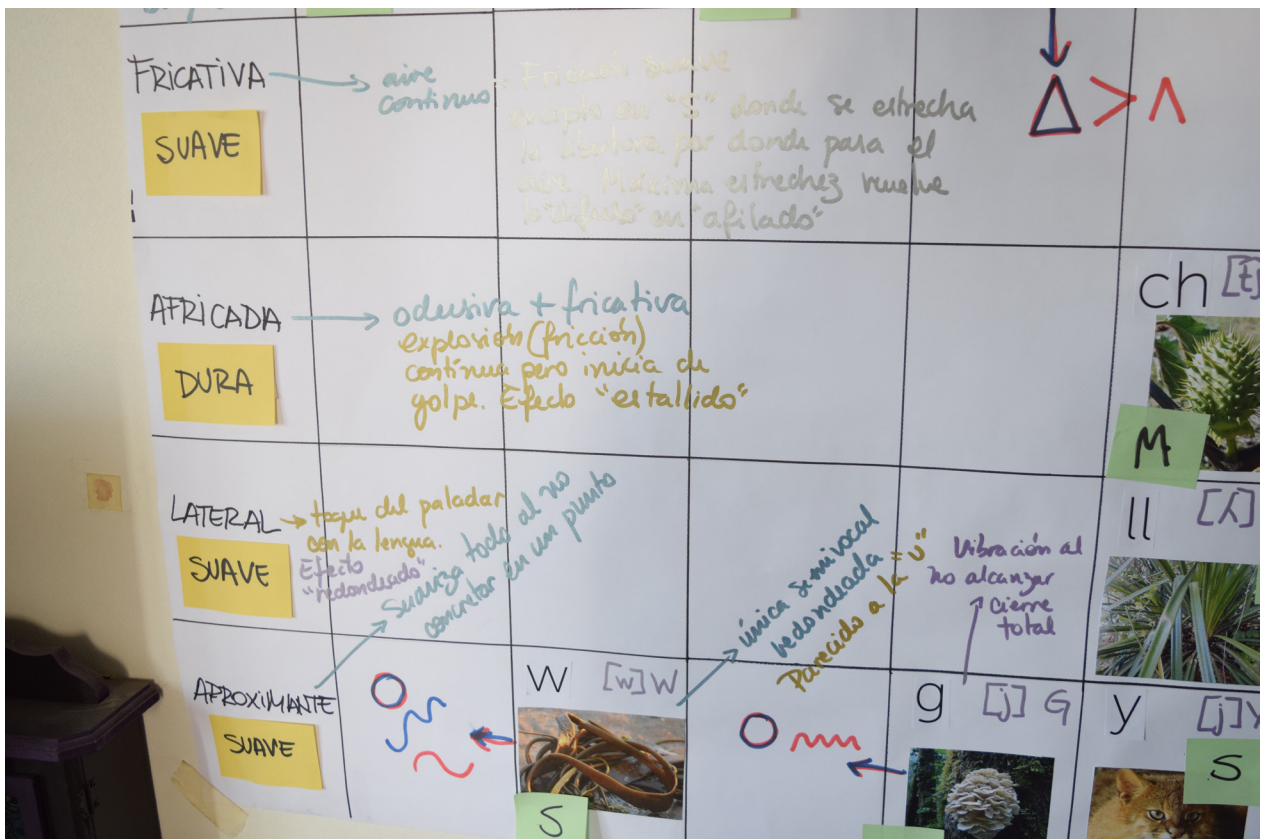 FRICATIVA
SUAVE
aire
continuo
- Fricación suave
excepto en "S" donde se estrecha
la abertura por donde pasa el
aire. Máxima estrechez vuelve
lo "difuso" en "afilado"
> Λ
AFRICADA
DURA
oclusiva + fricativa
explosión (fricción)
contínua pero inicia de
golpe. Efecto "estallido"
ch
M
LATERAL
SUAVE
toque del paladar
con la lengua.
Efecto
"redondeado"
Suaviza todo al no
concretar en un punto
única semivocal
redondeada
Parecido a la "u"
Vibración al
no alcanzar
cierre
total
ll [ʎ]
APROXIMANTE
SUAVE
W [w] W
S
g [j] G
y [j] Y
S